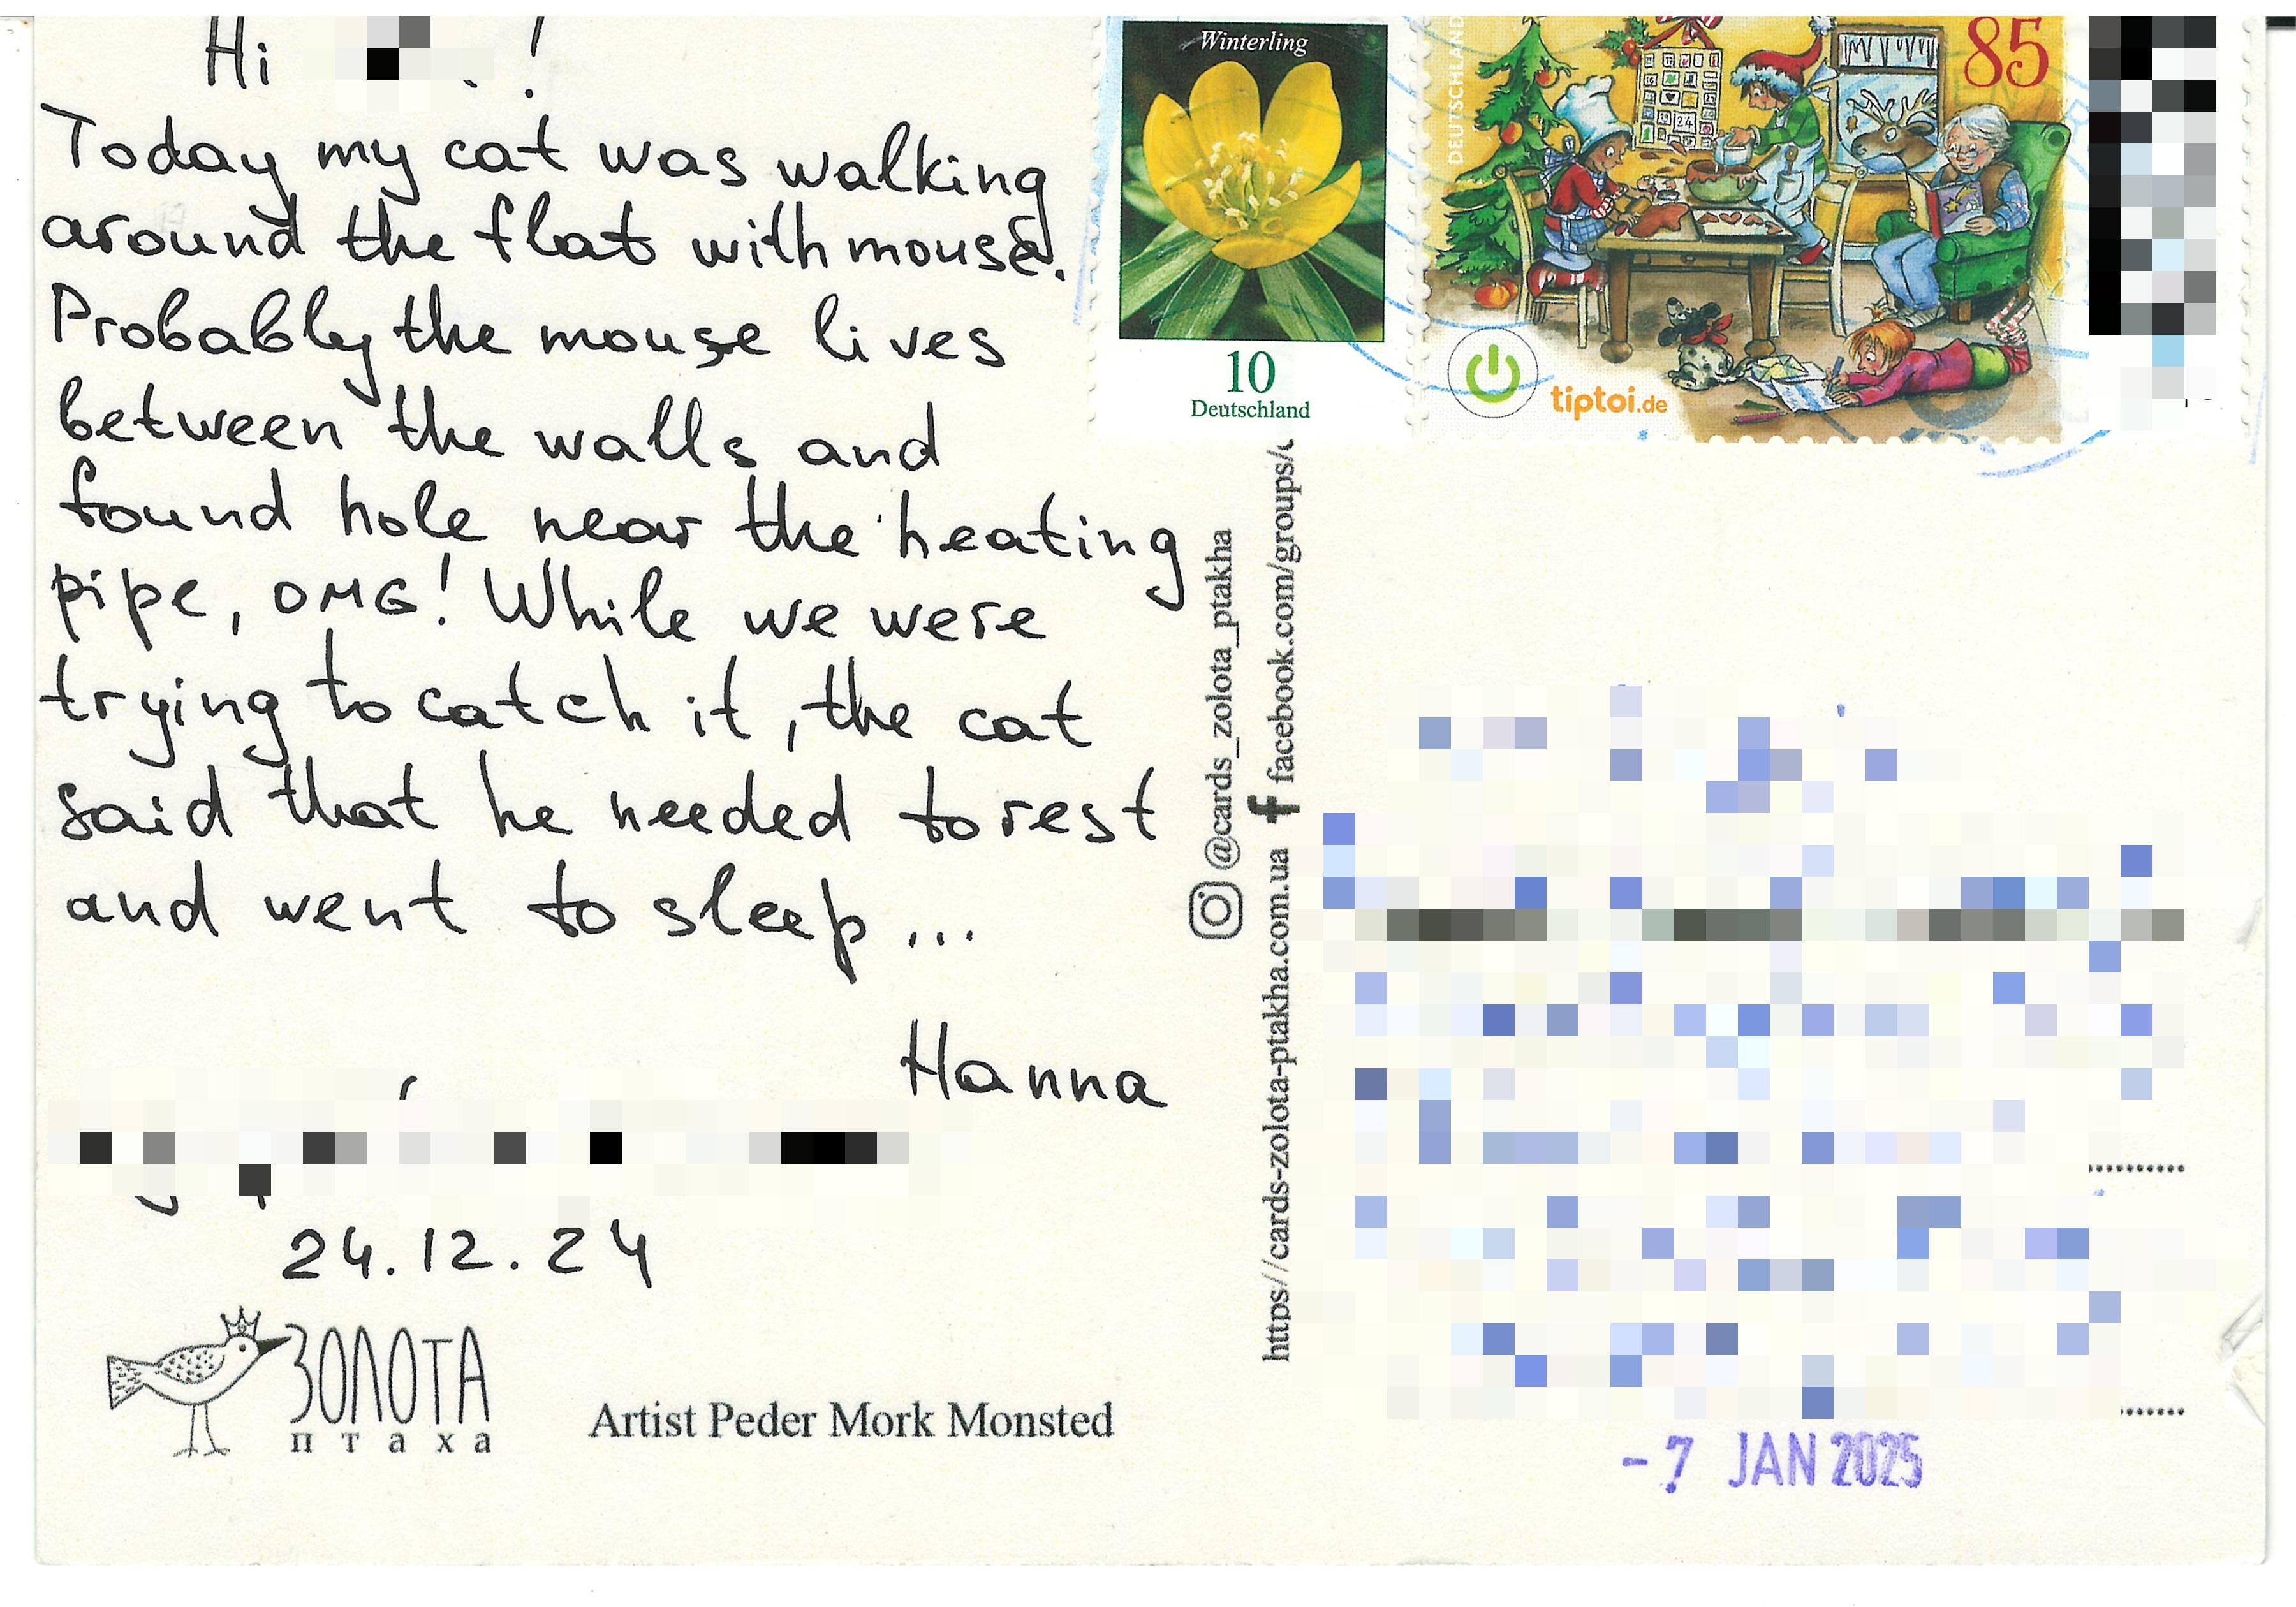 Hi !
Today my cat was walking
around the flat with mouse.
Probably the mouse lives
between the walls and
found hole near the heating
pipe, OMG! While we were
trying to catch it, the cat
said that he needed to rest
and went to sleep...
Hanna
24.12.24
ЗОЛОТА
птаха
Artist Peder Mork Monsted
@cards_zolota_ptakha
https://cards-zolota-ptakha.com.ua facebook.com/groups/
Winterling
10
Deutschland
DEUTSCHLAND
85
24
tiptoi.de
-7 JAN 2025